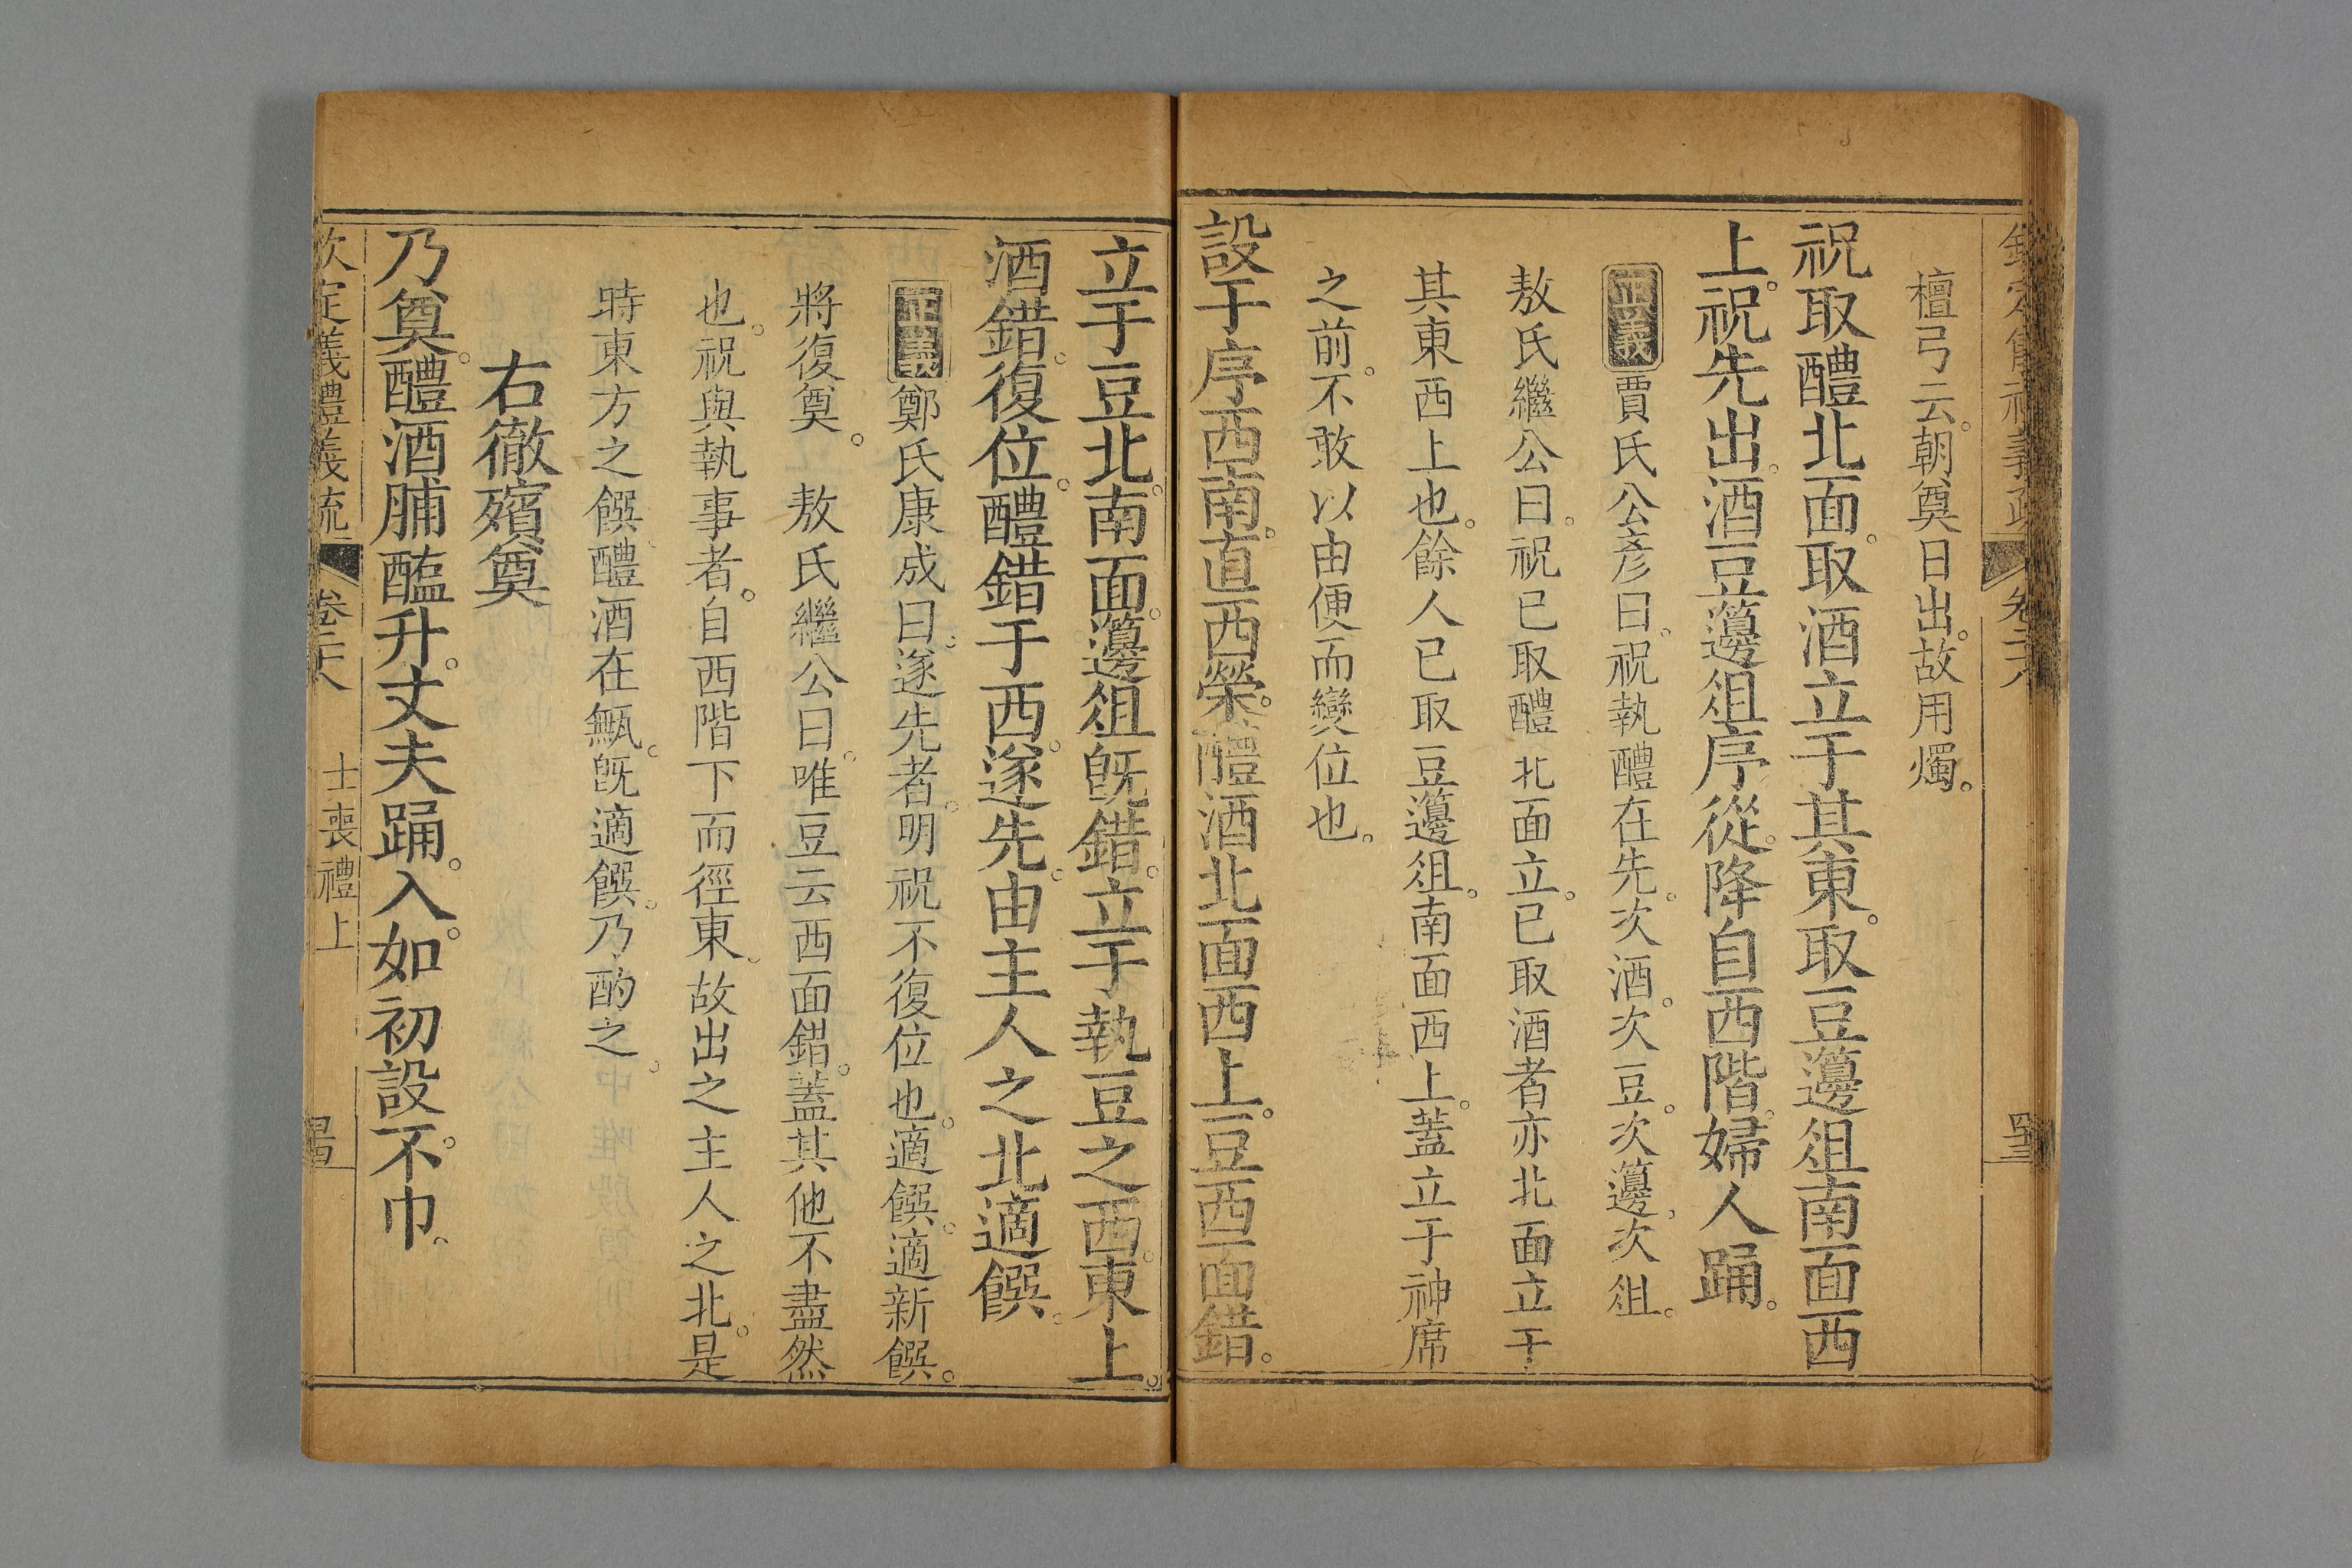 檀弓云。朝奠日出。故用燭。
祝取醴北面。取酒立于其東。取豆籩俎南面西
上。祝先出。酒豆籩俎序從。降自西階。婦人踊。
正義賈氏公彥曰。祝執醴在先。次酒。次豆。次籩。次俎。
敖氏繼公曰。祝已取醴北面立。已取酒者亦北面立于
其東西上也。餘人已取豆籩俎。南面西上。蓋立于神席
之前。不敢以由便而變位也。
設于序西南。直西榮。醴酒北面西上。豆西面錯。
立于豆北。南面。籩俎旣錯。立于執豆之西。東上。
酒錯。復位。醴錯于西。遂先。由主人之北適饌。
正義鄭氏康成曰。遂先者。明祝不復位也。適饌。適新饌。
將復奠。 敖氏繼公曰。唯豆云西面錯。蓋其他不盡然
也。祝與執事者。自西階下而徑東。故出之主人之北。是
時東方之饌。醴酒在甒。旣適饌。乃酌之。
右徹殯奠
乃奠。醴酒脯醢升。丈夫踊。入。如初設。不巾。
欽定義禮義疏 卷二十八 士喪禮上